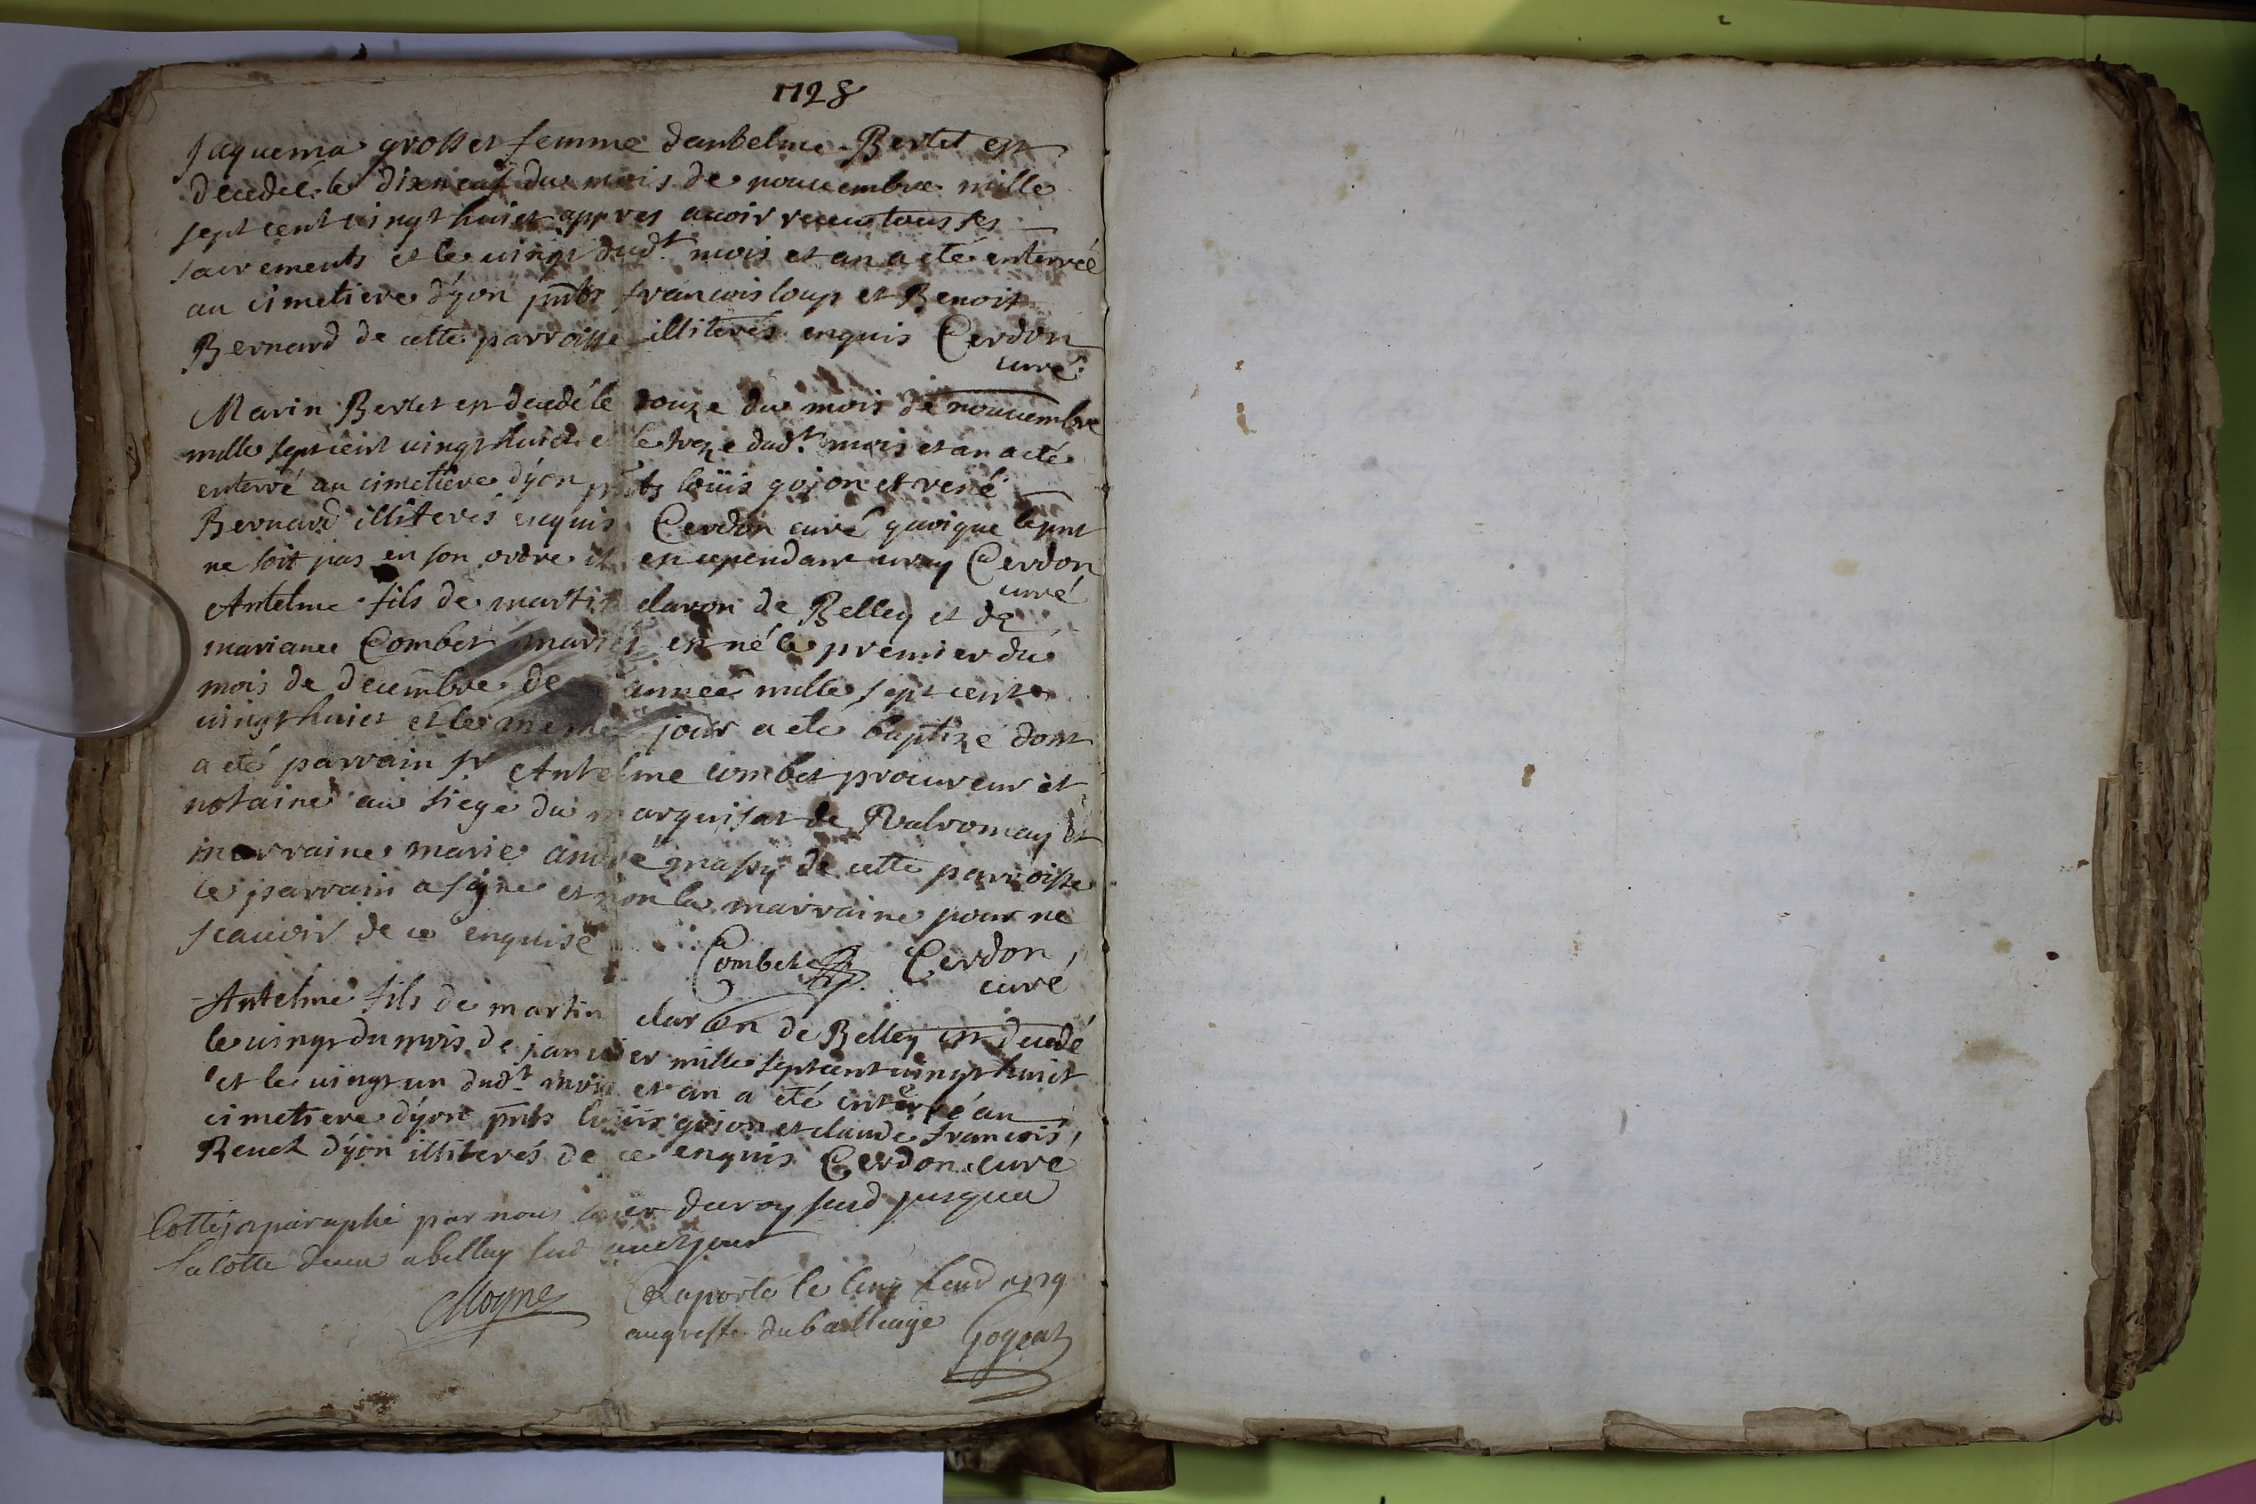 1728
Jaquema grosset femme dantelme Bertet est
decedée le dixneuf du mois de nouuembre mille
sept cent uingt huict appres auoir receu tous ses
sacrements et le uingt dud.t mois et an a eté enterrée
au cimetiere dÿon pnts francois loup et Benoit
Bernard de cette parroisse illiterés enquis Cerdon
curé
Marin Bertet est decedé le douze du mois de nouuembre
mille sept cent uingt huict et le treze dud.t mois et an a eté
enterré au cimetiere dÿon pnts loüis gojon et rené
Bernard illiterés enquis Cerdon curé quoique le pnt
ne soit pas en son ordre il est cependant uray Cerdon
curé
Antelme fils de martin claron de Belley et de
marianne Combet mariés est né le premier du
mois de decembre de année mille sept cent
uingt huict et le meme jour a eté baptizé dont
a eté parrain sr Antelme combet procureur et
notaire au siege du marquisat de Valromay et
marraine marie andré massy de cette parroisse
le parrain a signé et non la marraine pour ne
scauoir de ce enquise
Combet Cerdon
curé
Antelme fils de martin claron de Belley est decedé
le uingt du mois de januier mille sept cent uingt huict
et le uingt un dud.t mois et an a été enterré au
cimetiere dÿon pnts loüis gojon et claude francois
Reuel dÿon illiterés de ce enquis Cerdon curé
Cotté et paraphé par nous du roy jusqua
la cotte a belley
Moyne
Raporté le
au greffe du bailliage